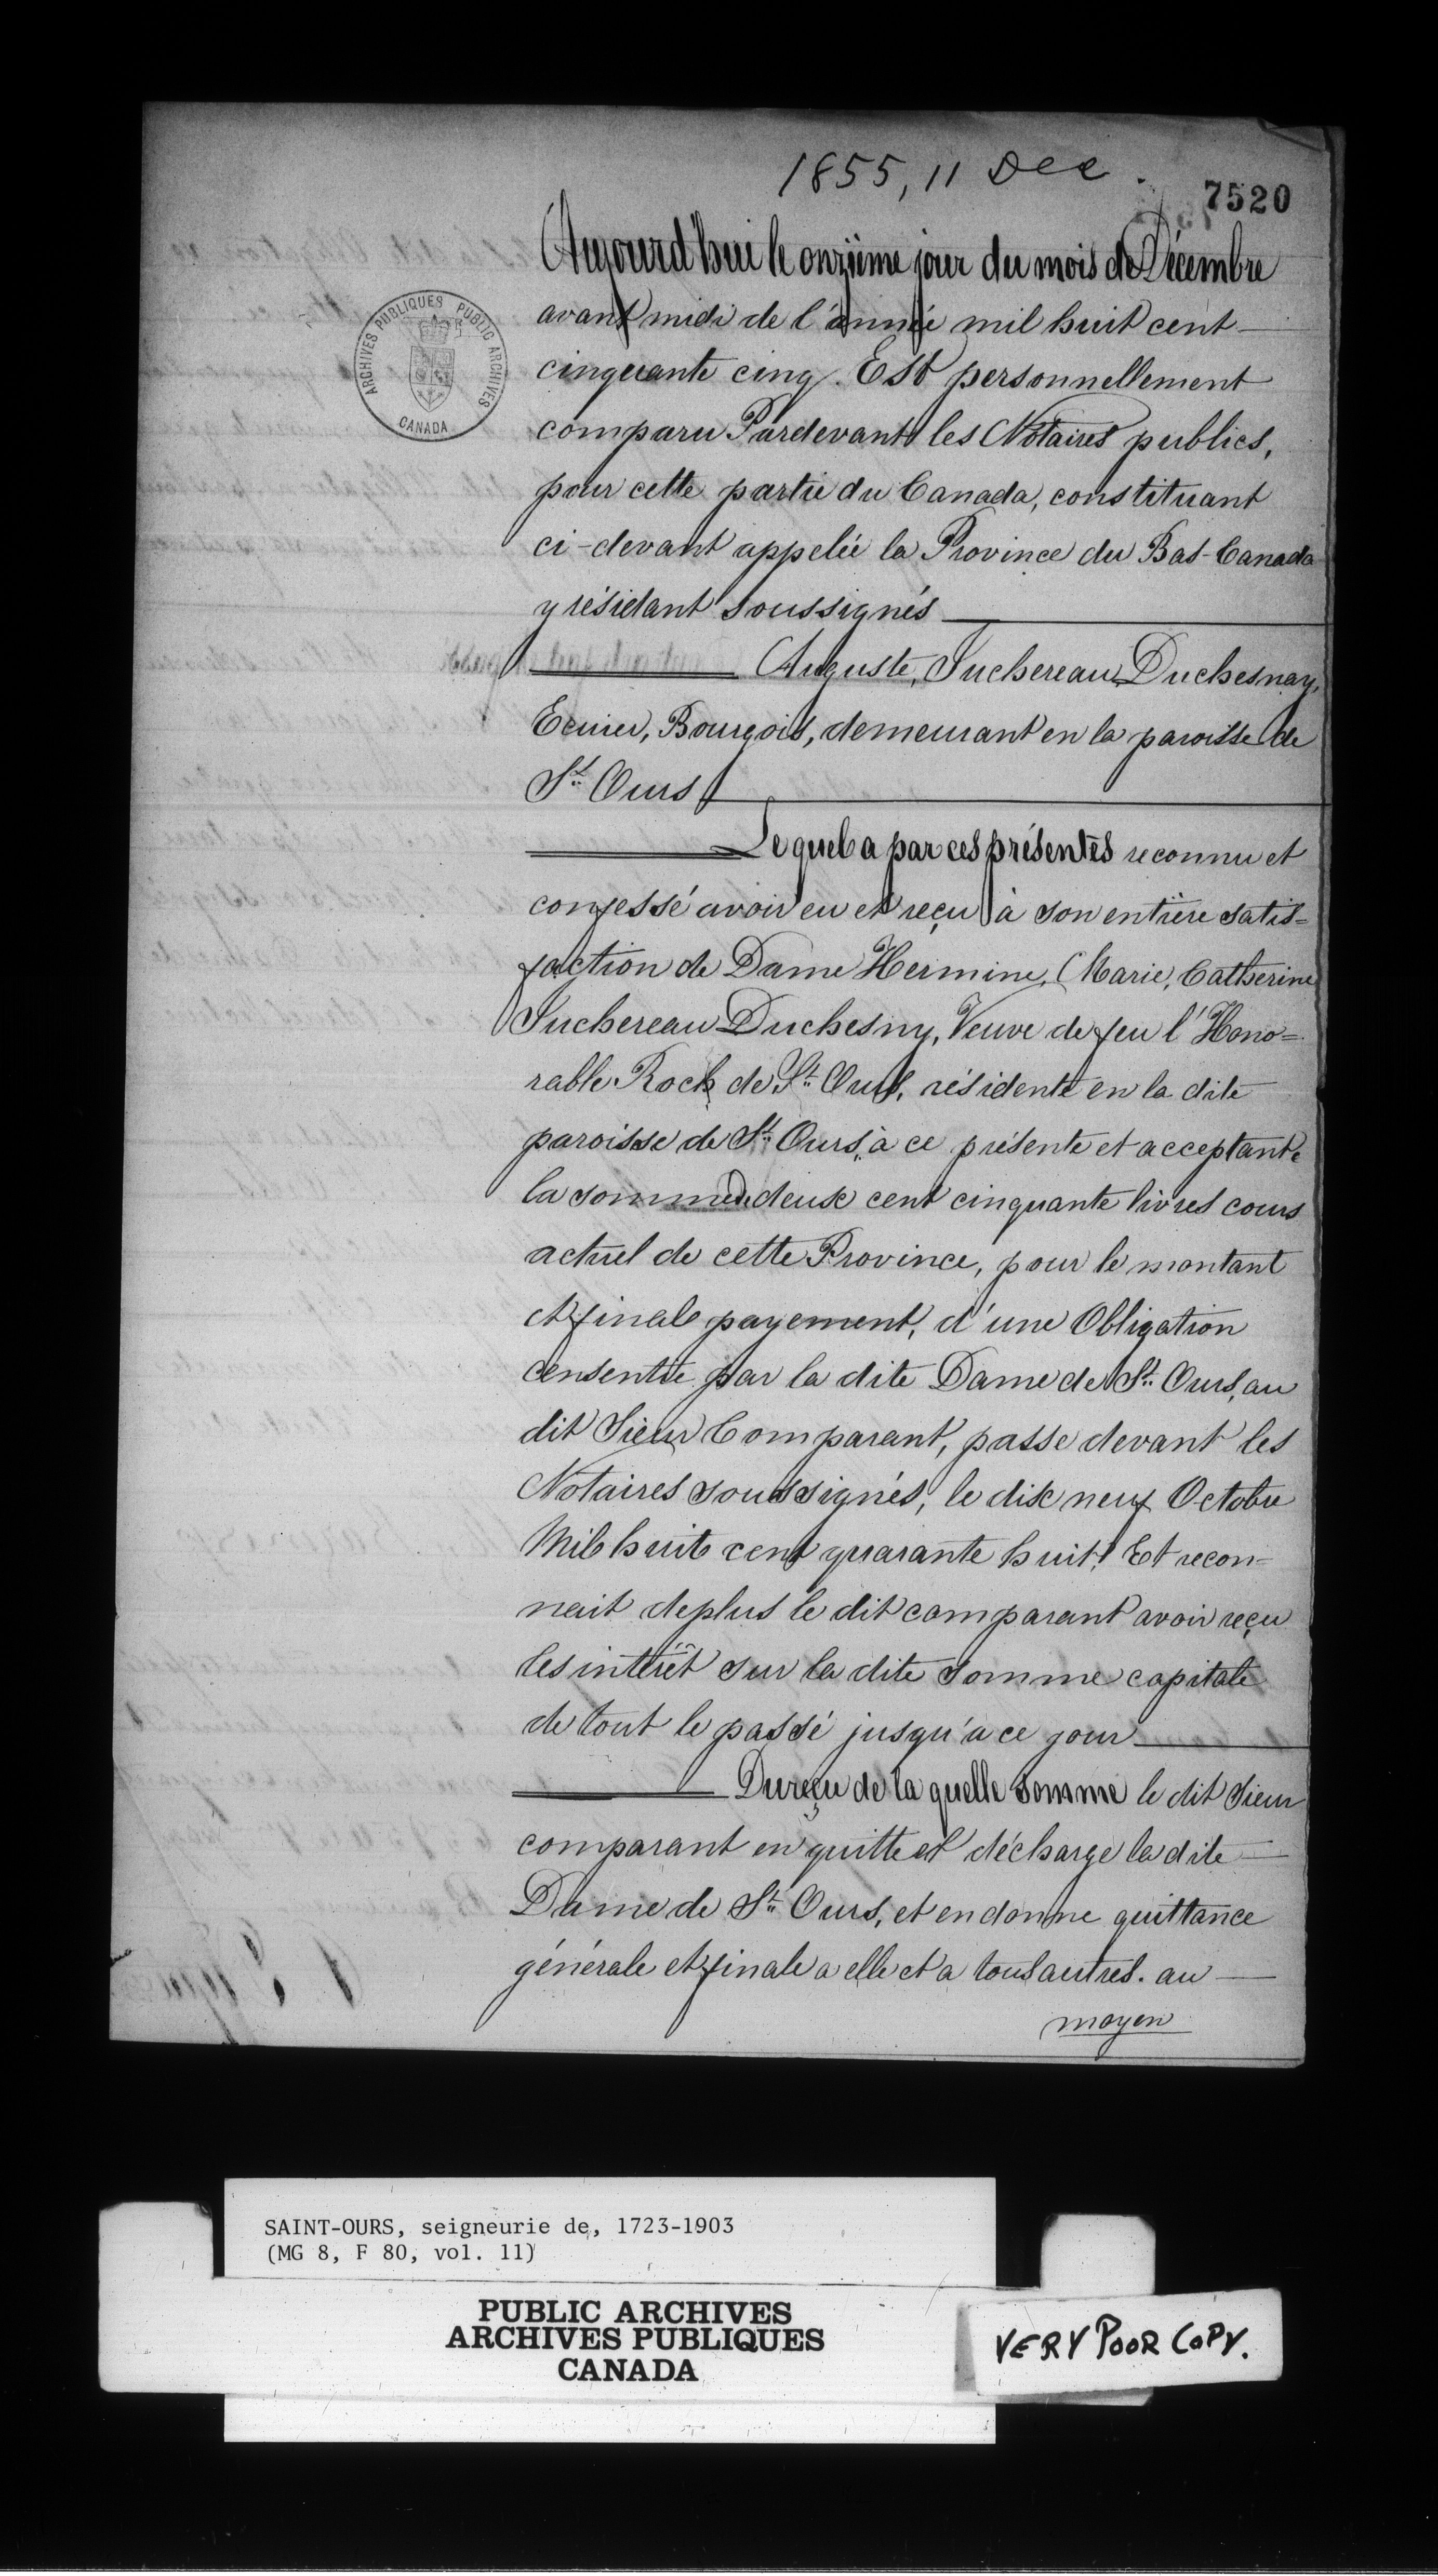 1855, 11 Dec.
7520
Aujourd'hui le onzième jour du mois de Décembre
avant midi de l'année mil huit cent
cinquante cinq. Est personnellement
comparu Pardevant les Notaires publics,
pour cette partie du Canada, constituant
ci-devant appelée la Province du Bas-Canada
y résidant soussignés
Auguste, Juchereau, Duchesnay,
Ecuier, Bourgois, demeurant en la paroisse de
St. Ours
Lequel a par ces présentes reconnu et
confessé avoir eu et reçu à son entière satis=
faction de Dame Hermine, Marie, Catherine
Juchereau Duchesny, Veuve de feu l'Hono=
rable Roch de St. Ours, résidente en la dite
paroisse de St. Ours, à ce présente et acceptante
la somme de deux cent cinquante livres cours
actuel de cette Province, pour le montant
et finale payement, d'une Obligation
consentie par la dite Dame de St. Ours, au
dit Sieur Comparant, passé devant les
Notaires soussignés, le dix neuf Octobre
Mil huit cent quarante huit. Et recon=
nait deplus le dit comparant avoir reçu
les intérêt sur la dite somme capitale
de tout le passé jusqu'a ce jour
Dureçu de la quelle somme le dit Sieur
comparant en quitte et décharge la dite
Dame de St. Ours, et en donne quittance
générale et finale a elle et a tous autres. au
moyen
ARCHIVES PUBLIQUES PUBLIC ARCHIVES
CANADA
SAINT-OURS, seigneurie de, 1723-1903
(MG 8, F 80, vol. 11)
PUBLIC ARCHIVES
ARCHIVES PUBLIQUES
CANADA
VERY POOR COPY.